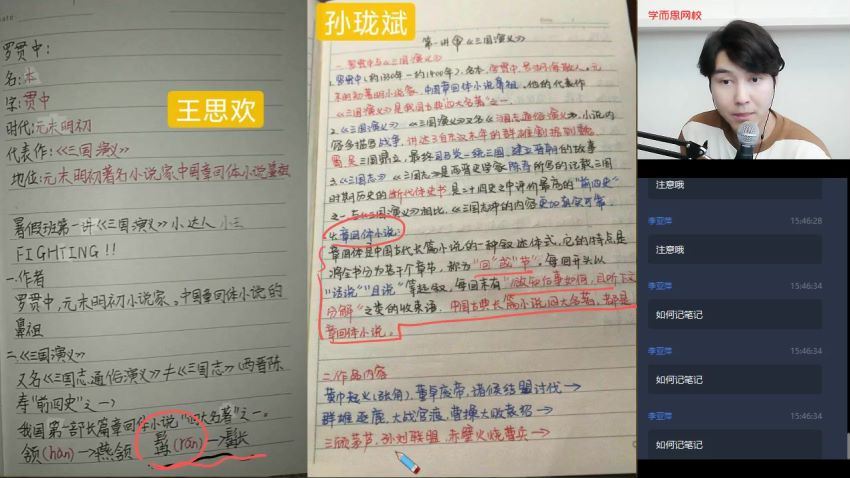 王思欢
罗贯中:
名:本
字:贯中
时代:元末明初
代表作:《三国演义》
地位:元末明初著名小说家,中国章回体小说鼻祖
暑假班第一讲《三国演义》小达人
FIGHTING!!
一.作者
罗贯中,元末明初小说家。中国章回体小说的
鼻祖
二.《三国演义》
又名《三国志通俗演义》≠《三国志》(西晋陈
寿"前四史"之一)
我国第一部长篇章回体小说"四大名著"之一。
颔(hàn)→燕颔 髯(rán)→髯长
孙珑斌
第一讲 《三国演义》
一.罗贯中与《三国演义》
1.罗贯中(约1330年—约1400年),名本,字贯中,号湖海散人。元
末明初著名小说家,中国章回体小说鼻祖,他的代表作
《三国演义》是我国古典四大名著之一。
2.《三国演义》:《三国演义》又名《三国志通俗演义》,小说内
容多描写战争,讲述了自东汉末年的群雄割据到魏
蜀吴三国鼎立,最终司马炎一统三国,建立晋朝的故事
3.《三国志》:《三国志》是西晋史学家陈寿所写的记载三国
时期历史的断代体史书,是二十四史之中评价最高的"前四史"
之一。与《三国演义》相比,《三国志》中的内容更加真实可靠。
4.章回体小说:
章回体是中国古代长篇小说的一种叙述体式,它的特点是
将全书分为若干个章节,称为"回"或"节"。每回开头以
"话说""且说"等起叙,每回末有"欲知后事如何,且听下文
分解"之类的收束语。中国古典长篇小说四大名著,都是
章回体小说。
二.作品内容
黄巾起义(张角),董卓废帝,诸侯结盟讨伐→
群雄逐鹿,大战官渡,曹操大败袁绍→
三顾茅庐,孙刘联盟,赤壁火烧曹兵→
学而思网校
注意哦
李亚萍 15:46:28
注意哦
李亚萍 15:46:34
如何记笔记
李亚萍 15:46:34
如何记笔记
李亚萍 15:46:34
如何记笔记